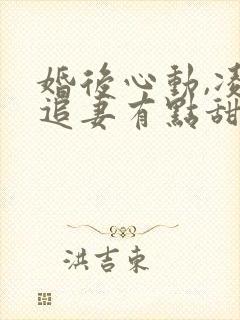 婚後心動,凌
追妻有點甜
洪吉東